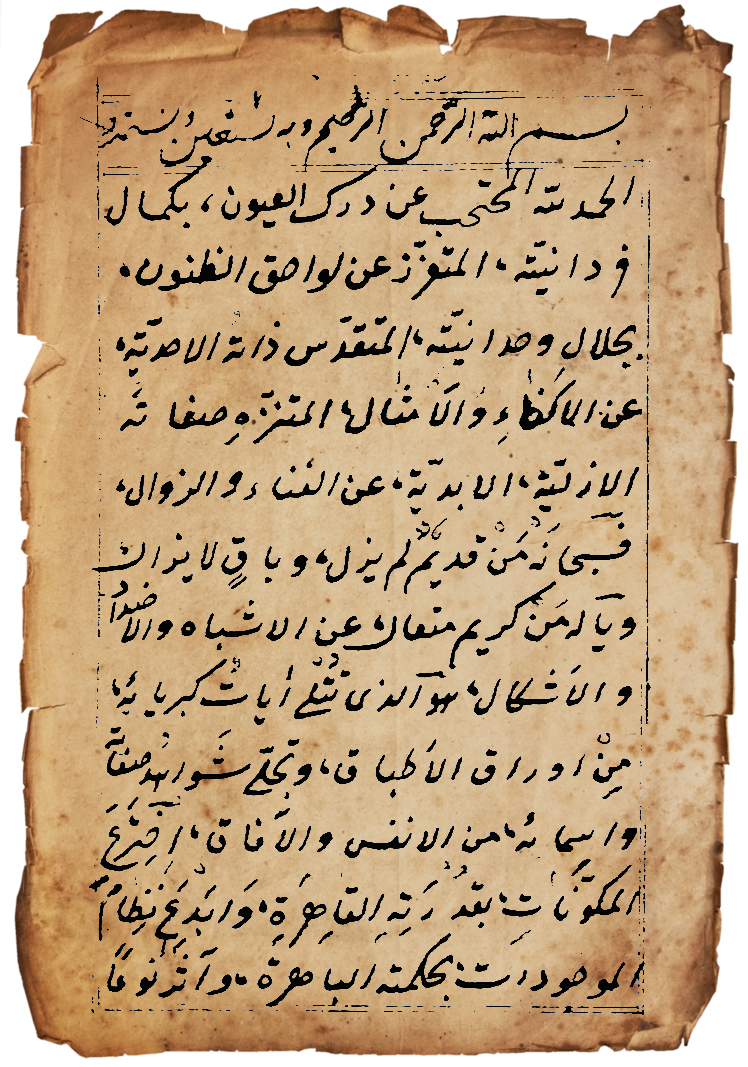 بسم الله الرحمن الرحيم وبه نستعين ونستمد
الحمد لله المحتجب عن درك العيون، بكمال
فردانيّته، المتعزّز عن لواحق الظنون،
بجلالِ وحدانيّته، المتقدّس ذاته الاحديّة،
عن الاكفاءِ والأمثال، المتنزّهِ صفاته
الازليّة، الابديّة، عن الفناء والزوال،
فسبحانَه مَنْ قديمٌ لم يزل، وباقٍ لا يزال
وياَله مَنْ كريم متعال عن الاشباه والاضداد
والاَشكال، هو الذى تُتْلى أيات كبريائه،
مِنْ اوراق الاَطباق، وتجلّى شَواهد صفاته
واسمائه، من الانفس والاَفاق، اِخترَعَ
المكوّنَاتِ، بقدْرَتِهِ القاهِرَةِ، وَابَدعَ نظاَمَ
الموجودات، بحكمته الباهرة، وآثر نوعاً